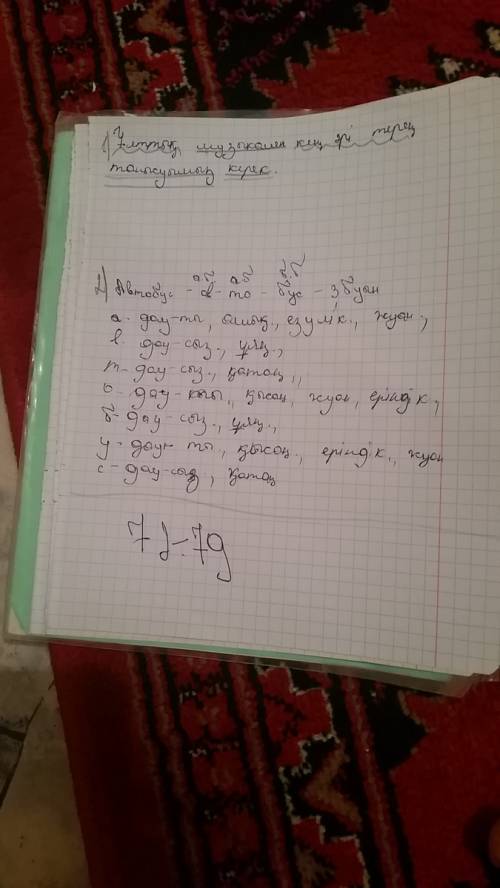 1) Ұлттық музыкамен кең әрі терең
танысуымыз керек.
а.б а.б б.б
2) Автобус - ав-то-бус - 3 буын
а- дау-ты, ашық, езулік., жуан.,
в- дау-сыз., ұяң.,
т- дау-сыз., қатаң.,
о- дау-ты., қысаң, жуан, еріндік.,
б- дау-сыз., ұяң.,
у- дау-ты., қысаң., еріндік., жуан
с- дау-сыз, қатаң
7